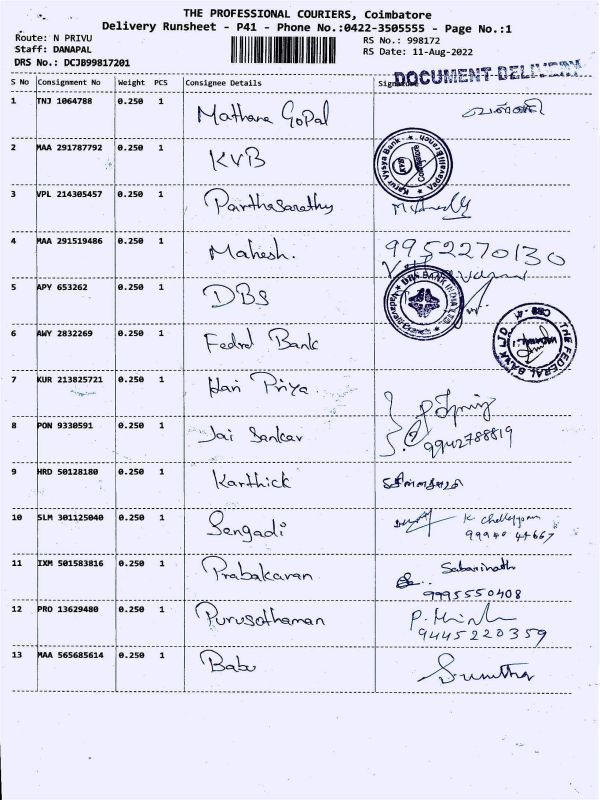 THE PROFESSIONAL COURIERS, Coimbatore
Delivery Runsheet - P41 - Phone No.:0422-3505555 - Page No.:1
Route: N PRIVU
RS No.: 998172
Staff: DANAPAL
RS Date: 11-Aug-2022
DRS No.: DCJB99817201
DOCUMENT DELIVERY
S No Consignment No Weight PCS Consignee Details Signature
1 TNJ 1064788 0.250 1 Mathana Gopal
2 MAA 291787792 0.250 1 KVB
Karur Vysya Bank KVB Coimbatore
3 VPL 214305457 0.250 1 Parthasarathy
4 MAA 291519486 0.250 1 Mahesh. 9952270130
5 APY 653262 0.250 1 DBS
DBS BANK INDIA LTD
6 AWY 2832269 0.250 1 Fedrel Bank
THE FEDERAL BANK LTD
7 KUR 213825721 0.250 1 Hari Priya.
8 PON 9330591 0.250 1 Jai Sankar 9942788819
9 HRD 50128180 0.250 1 Karthick
10 SLM 301125040 0.250 1 Sengadi
11 IXM 501583816 0.250 1 Prabakaran Sabarinath
9995550408
12 PRO 13629480 0.250 1 Purusothaman
9445220359
13 MAA 565685614 0.250 1 Babu Sumitha